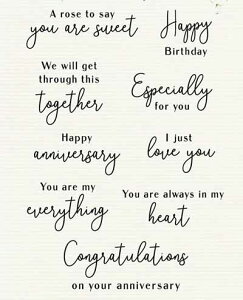 A rose to say
you are sweet
Happy
Birthday
We will get
through this
together
Especially
for you
Happy
anniversary
I just
love you
You are my
everything
You are always in my
heart
Congratulations
on your anniversary